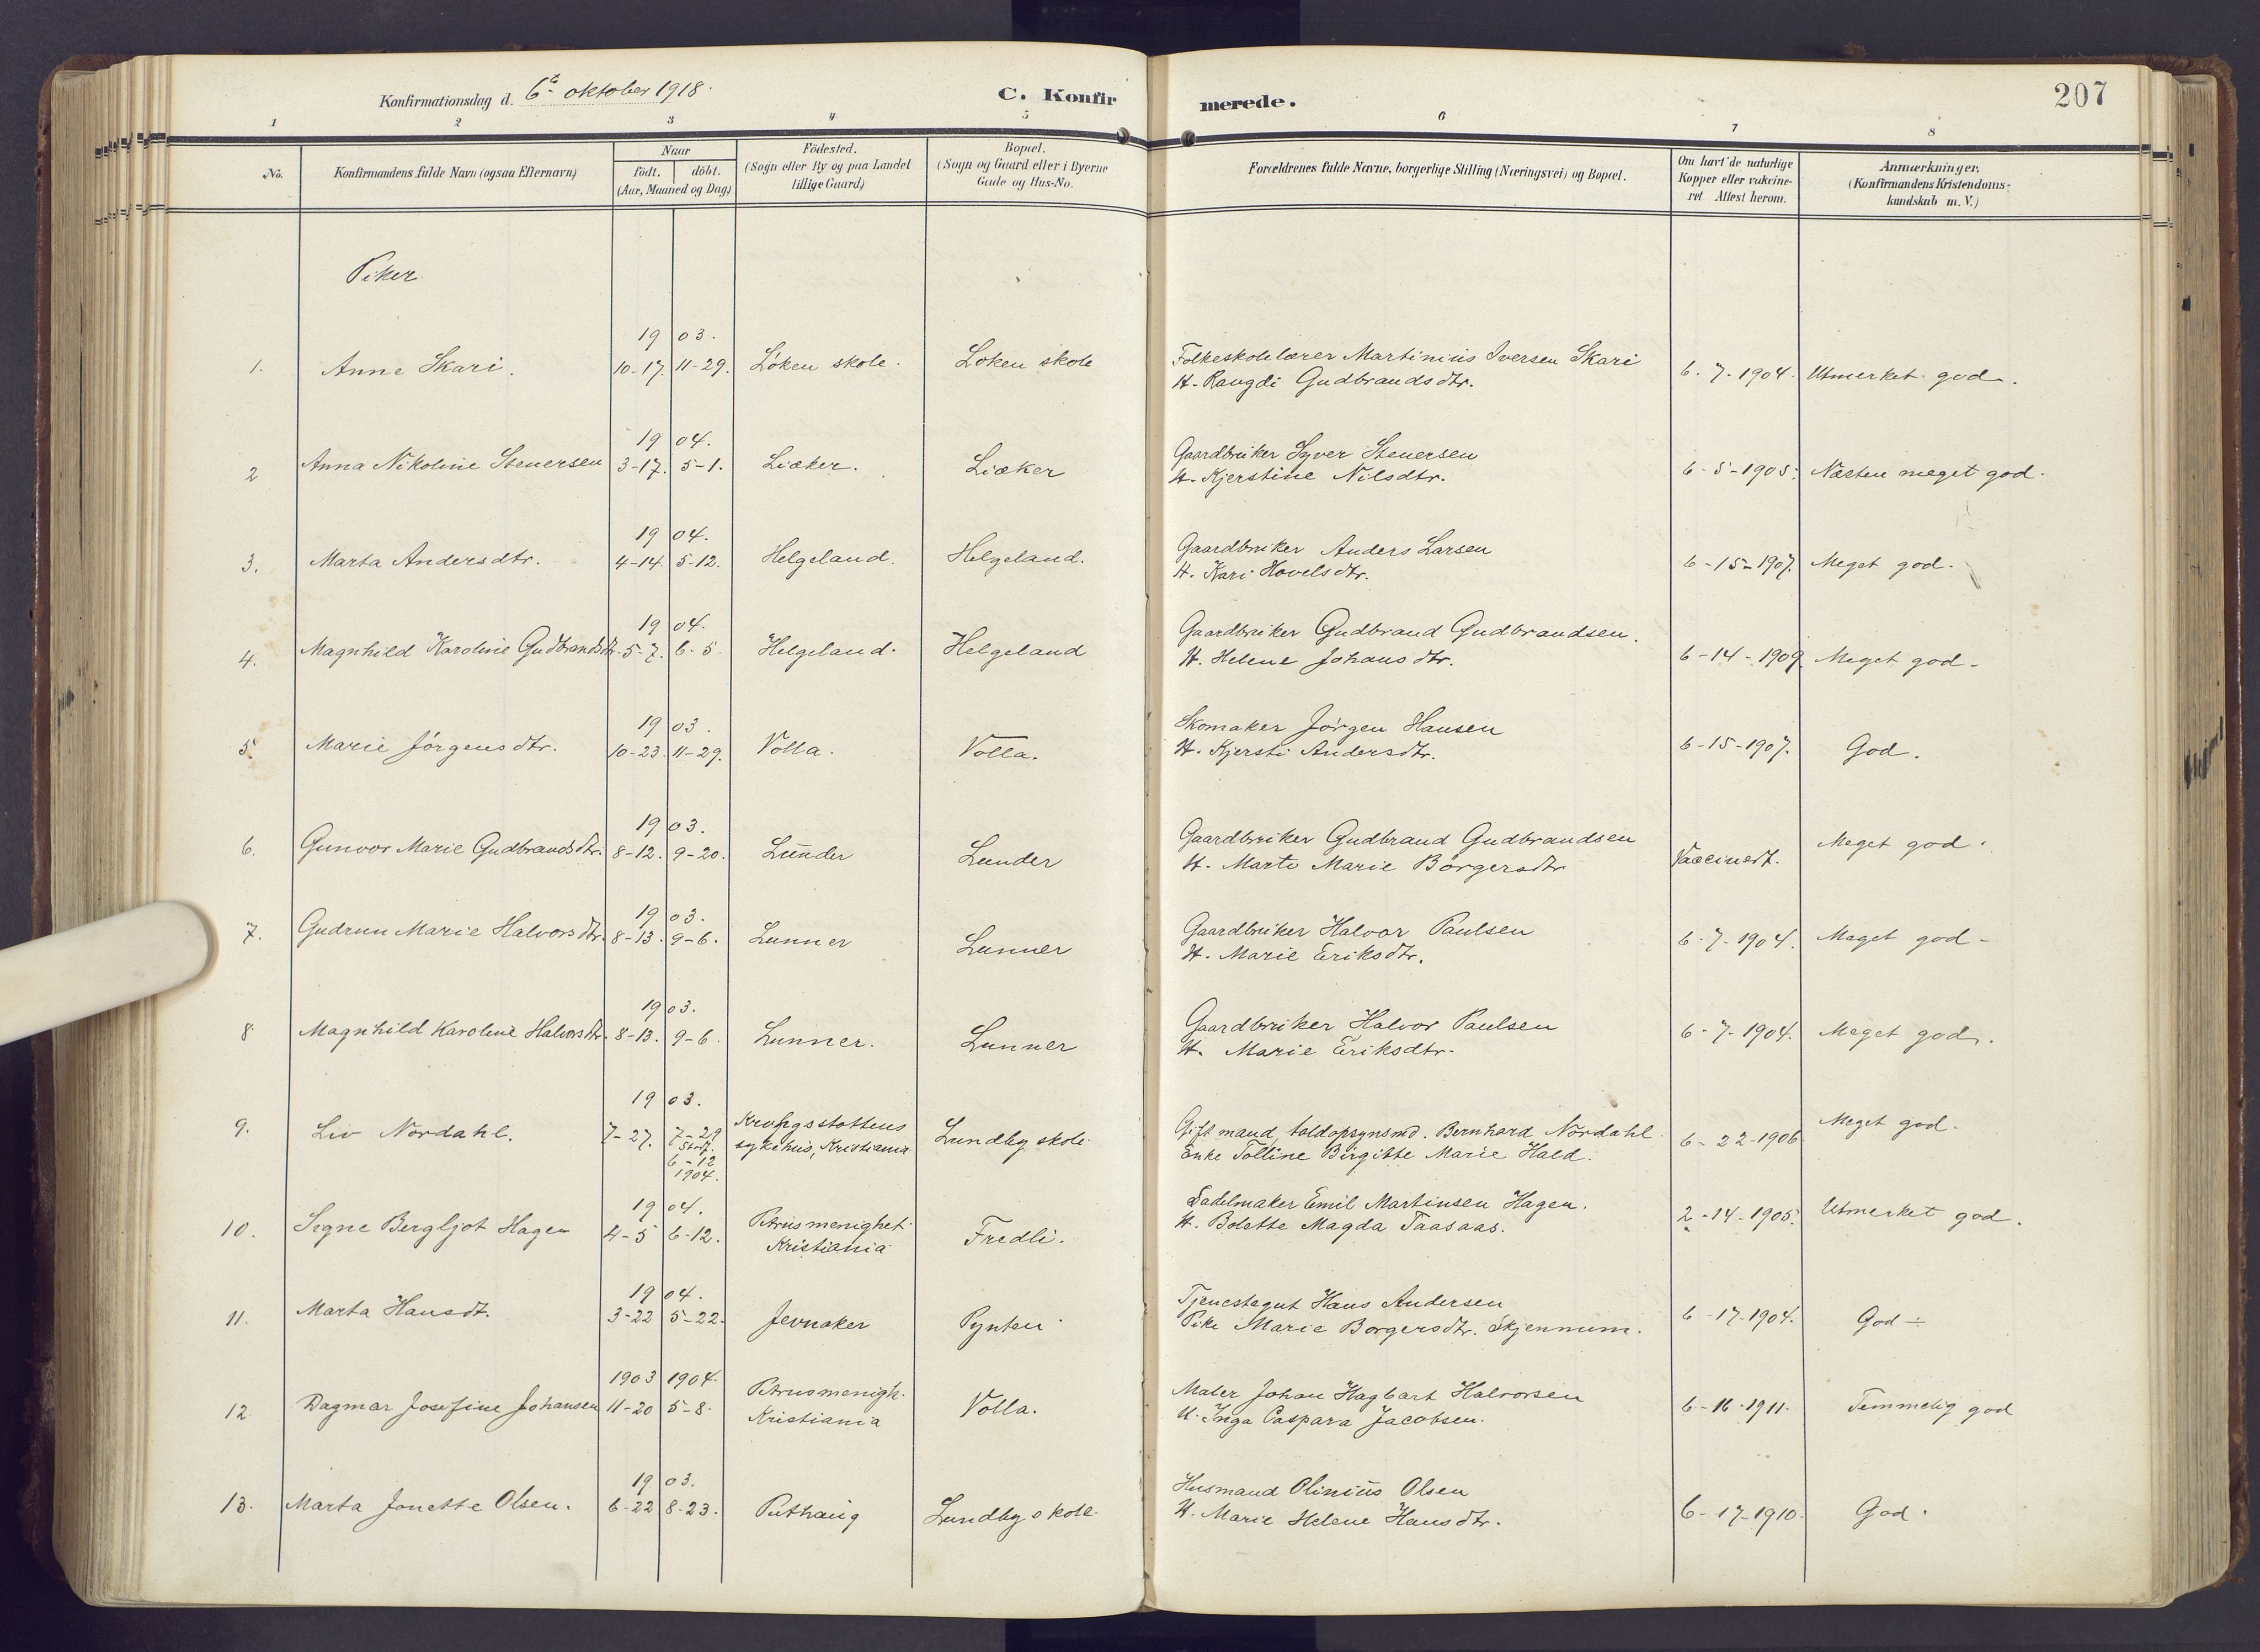 Konfirmationsdag d. 6te oktober 1918.
C. Konfirmerede.
207
1 2 3 4 5 6 7 8
No.
Konfirmandens fulde Navn (ogsaa Efternavn)
Naar
födt. döbt.
(Aar, Maaned og Dag)
Födested.
(Sogn eller By og paa Landet
tillige Gaard)
Bopæl.
(Sogn og Gaard eller i Byerne
Gade og Hus-No.
Forældrenes fulde Navne, borgerlige Stilling (Næringsvei) og Bopæl.
Om havt de naturlige
Kopper eller vakcine-
ret Attest herom.
Anmærkninger.
(Konfirmandens Kristendoms-
kundskab m. V.)
Piker
1903.
1. Anne Skari. 10-17. 11-29. Løken skole. Løken skole Folkeskolelærer Martinius Iversen Skari 6-7-1904. Utmerket god.
H. Rangdi Gudbrandsdtr.
1904.
2 Anna Nikoline Stenersen 3-17. 5-1. Liæker. Liæker Gaardbruker Syver Stenersen 6-5-1905. Næsten meget god.
H. Kjerstine Nilsdtr.
1904.
3. Marta Andersdtr. 4-14. 5-12. Helgeland. Helgeland. Gaardbruker Anders Larsen 6-15-1907. Meget god.
H. Kari Hovelsdtr.
1904.
4. Magnhild Karoline Gudbrandsdtr. 5-7. 6-5. Helgeland. Helgeland Gaardbruker Gudbrand Gudbrandsen. 6-14-1909. Meget god-
H. Helene Johansdtr.
1903.
5. Marie Jørgensdtr. 10-23. 11-29. Volla. Volla. Skomaker Jørgen Hansen 6-15-1907. God.
H. Kjersti Andersdtr.
1903.
6. Gunvor Marie Gudbrandsdtr. 8-12. 9-20. Lunder Lunder Gaardbruker Gudbrand Gudbrandsen Vaccinert. Meget god.
H. Marte Marie Børgersdtr
1903.
7. Gudrun Marie Halvorsdtr. 8-13. 9-6. Lunner Lunner Gaardbruker Halvor Paulsen 6-7-1904. Meget god-
H. Marie Eriksdtr.
1903.
8 Magnhild Karoline Halvorsdtr. 8-13. 9-6. Lunner. Lunner Gaardbruker Halvor Paulsen 6-7-1904. Meget god.
H. Marie Eriksdtr.
1903.
9. Liv Nordahl. 7-27. 7-29 sykehus, Kristiania Lundby skole Gift mand, toldopsynsmd. Bernhard Nordahl 6-22-1906 Meget god.
6-12
1904.
Enke Tolline Birgitte Marie Hald.
1904.
10. Signe Bergljot Hagen 4-5 6-12. Petrus menighet Kristiania Fredli. Sadelmaker Emil Martinsen Hagen. 2-14-1905. Utmerket god.
H. Bolette Magda Taasaas.
1904.
11. Marta Hansdt. 3-22 5-22. Jevnaker Pynten Tjenestegut Hans Andersen 6-17-1904. God ÷
Pike Marie Borgersdtr. Skjennum.
1903 1904.
12 Dagmar Josefine Johansen 11-20 5-8. Petrus menigh. Kristiania Volla. Maler Johan Hagbart Halvorsen 6-16-1911. Temmelig god
H. Inga Caspara Jacobsen.
1903.
13. Marta Jonette Olsen. 6-22 8-23. Puthaug Lundby skole Husmand Olinius Olsen 6-17-1910. God.
H. Marie Helene Hansdtr.